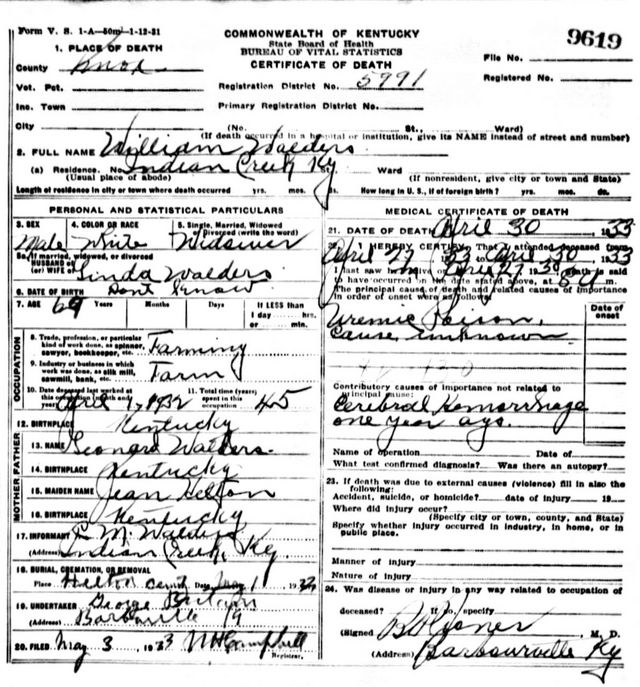 Form V. S. 1-A—50m—1-12-31
COMMONWEALTH OF KENTUCKY
State Board of Health
BUREAU OF VITAL STATISTICS
CERTIFICATE OF DEATH
9619
File No.
Registered No.
1. PLACE OF DEATH
County Knox
Vot. Pct.
Registration District No. 5991
Inc. Town
Primary Registration District No.
City (No. St., Ward)
(If death occurred in a hospital or institution, give its NAME instead of street and number)
2. FULL NAME William Walders
(a) Residence. No. Indian Creek Ky Ward
(Usual place of abode) (If nonresident, give city or town and State)
Length of residence in city or town where death occurred yrs. mos. ds. How long in U. S., if of foreign birth? yrs. mos. ds.
PERSONAL AND STATISTICAL PARTICULARS
3. SEX 4. COLOR OR RACE 5. Single, Married, Widowed
or Divorced (write the word)
Male White Widower
5a. If married, widowed, or divorced
HUSBAND of
(or) WIFE of Linda Walders
6. DATE OF BIRTH Dont Know
7. AGE 69 Years Months Days If LESS than
1 day hrs.
or min.
OCCUPATION
8. Trade, profession, or particular
kind of work done, as spinner,
sawyer, bookkeeper, etc. Farming
9. Industry or business in which
work was done, as silk mill,
sawmill, bank, etc. Farm
10. Date deceased last worked at
this occupation (month and
year) April 1, 1932
11. Total time (years)
spent in this
occupation 45
12. BIRTHPLACE Kentucky
FATHER
13. NAME Leonard Walders
14. BIRTHPLACE Kentucky
MOTHER
15. MAIDEN NAME Jean Helton
16. BIRTHPLACE Kentucky
17. INFORMANT M. Walders
(Address) Indian Creek, Ky.
18. BURIAL, CREMATION, OR REMOVAL
Place Helton Date May 1 193
19. UNDERTAKER George
(Address) Barbourville Ky
20. FILED May 3 1933 Campbell
Registrar.
MEDICAL CERTIFICATE OF DEATH
21. DATE OF DEATH April 30 1933
22. I HEREBY CERTIFY, That I attended deceased from
April 27 33 to April 30 1933
I last saw h alive on April 27 1930 death is said
to have occurred on the date stated above, at m.
The principal cause of death and related causes of importance
in order of onset were as follows:
Date of
onset
Uremic Poison,
cause unknown
Contributory causes of importance not related to
principal cause:
Cerebral Hemorrhage
one year ago.
Name of operation Date of
What test confirmed diagnosis? Was there an autopsy?
23. If death was due to external causes (violence) fill in also the
following:
Accident, suicide, or homicide? date of injury 19
Where did injury occur?
(Specify city or town, county, and State)
Specify whether injury occurred in industry, in home, or in
public place.
Manner of injury
Nature of injury
24. Was disease or injury in any way related to occupation of
deceased? If so, specify
(Signed) M. D.
(Address) Barbourville Ky